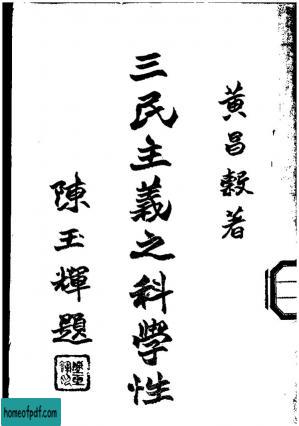 黃昌穀著
三民主義之科學性
陳玉輝題
homeofpdf.com